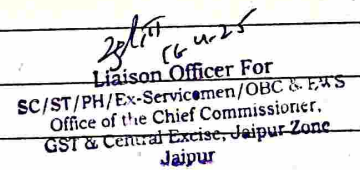 16.4.25
Liaison Officer For
SC/ST/PH/Ex-Servicemen/OBC & EWS
Office of the Chief Commissioner,
GST & Central Excise, Jaipur Zone
Jaipur